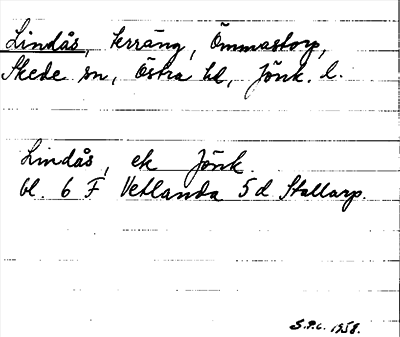 Lindås, terräng, Ömmastorp,
Skede sn, Östra hd, Jönk. l.
Lindås, ek Jönk.
bl. 6 F Vetlanda 5 d Stallarp.
S.P.L. 1958.